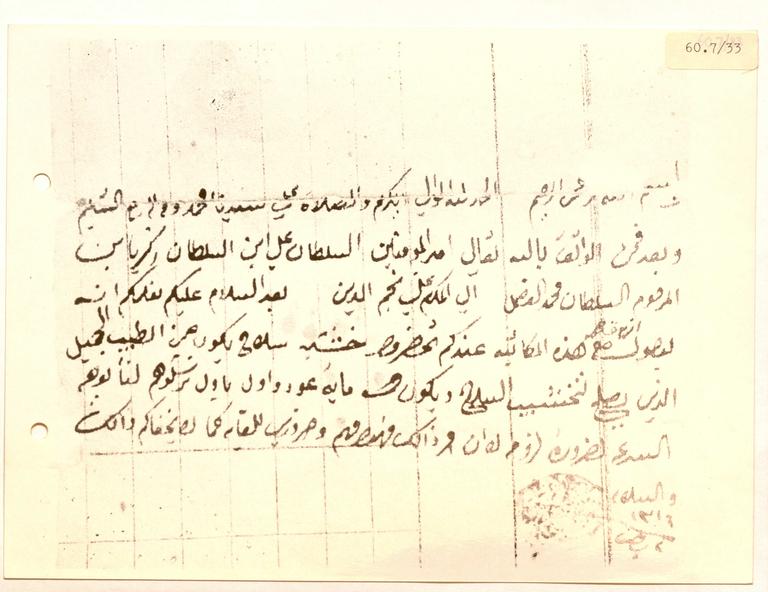 60.7/33
بسم الله الرحمن الرحيم الحمد لله الموالي بكرم والصلاة على سيدنا محمد وآله
وبعد فمن الواثق بالله تعالى امير المومنين السلطان علي ابن السلطان زكريا ابن
المرحوم السلطان محمد الفضل الى المكرم علي نجم الدين بعد السلام عليكم نعلمكم انه
لوصول هذه المكاتبه عندكم تحضروا خشب سلاح يكون من الطيب الجميل
الذي يصلح لتخشيب السلاح ويكون مايه عود واول باول ترسلوهم لنا لوجه
السرعه لضرورة لزومه لان ذالك مهم وضروري للغايه كما لا يخفاكم ذالك
والسلام
١٣١٦